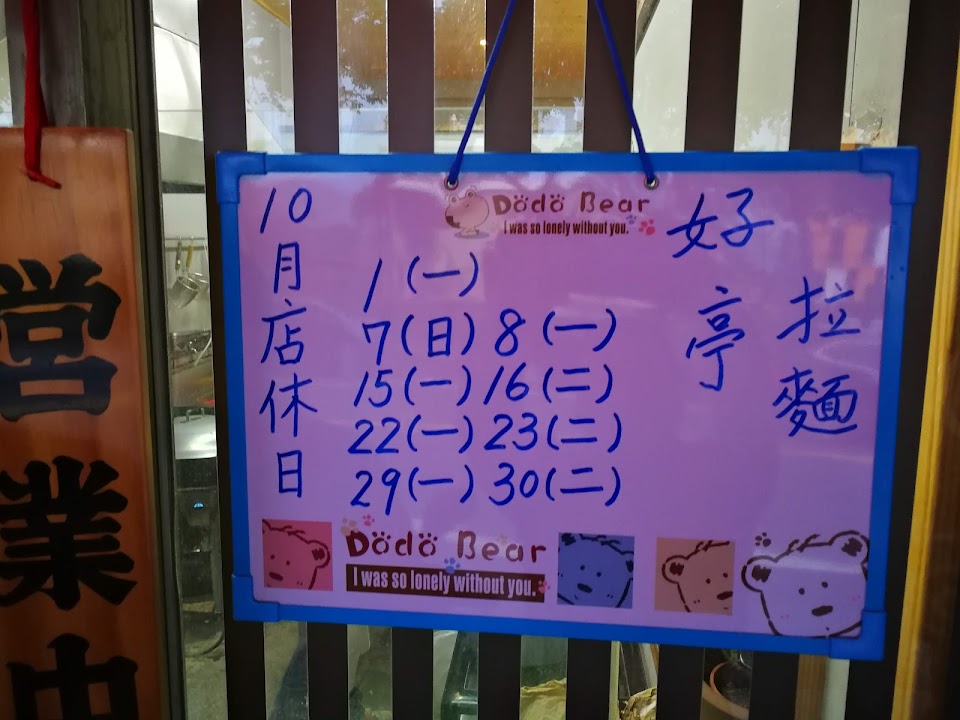 営業中
10月店休日
Dodo Bear
I was so lonely without you.
1(一)
7(日) 8(一)
15(一) 16(二)
22(一) 23(二)
29(一) 30(二)
好子亭
拉麵
Dodo Bear
I was so lonely without you.